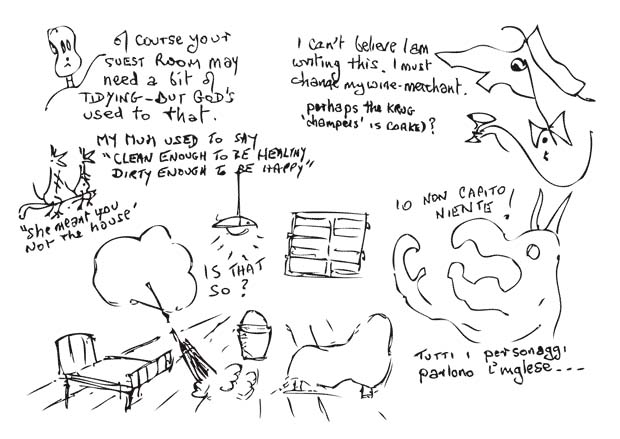 Of course your
guest room may
need a bit of
tidying - but God's
used to that.
I can't believe I am
writing this. I must
change my wine-merchant.
perhaps the KRUG
'champers' is corked?
MY MUM USED TO SAY
"CLEAN ENOUGH TO BE HEALTHY
DIRTY ENOUGH TO BE HAPPY"
"She meant you
Not the house'
IS THAT
SO?
IO NON CAPITO
NIENTE!
TUTTI I personaggi
parlono l'inglese ---